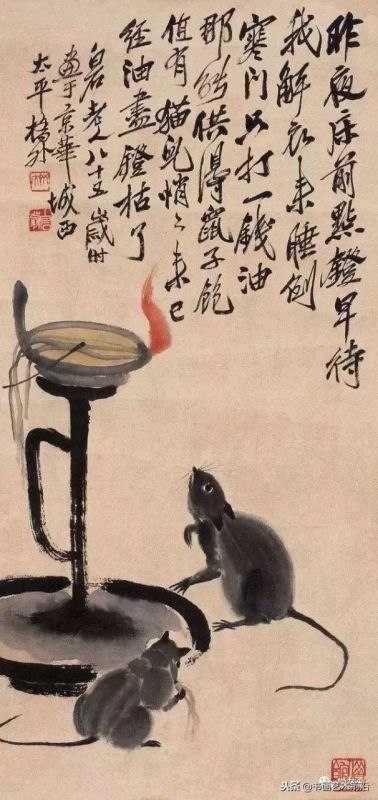 昨夜床前點鐙早待
我解衣来睡倒
寒門只打一錢油
那能供得鼠子飽
值有猫兒悄〻来已
經油盡鐙枯了
白石老人八十五歲時
畫于京華城西
太平橋外
头条 @书画艺术